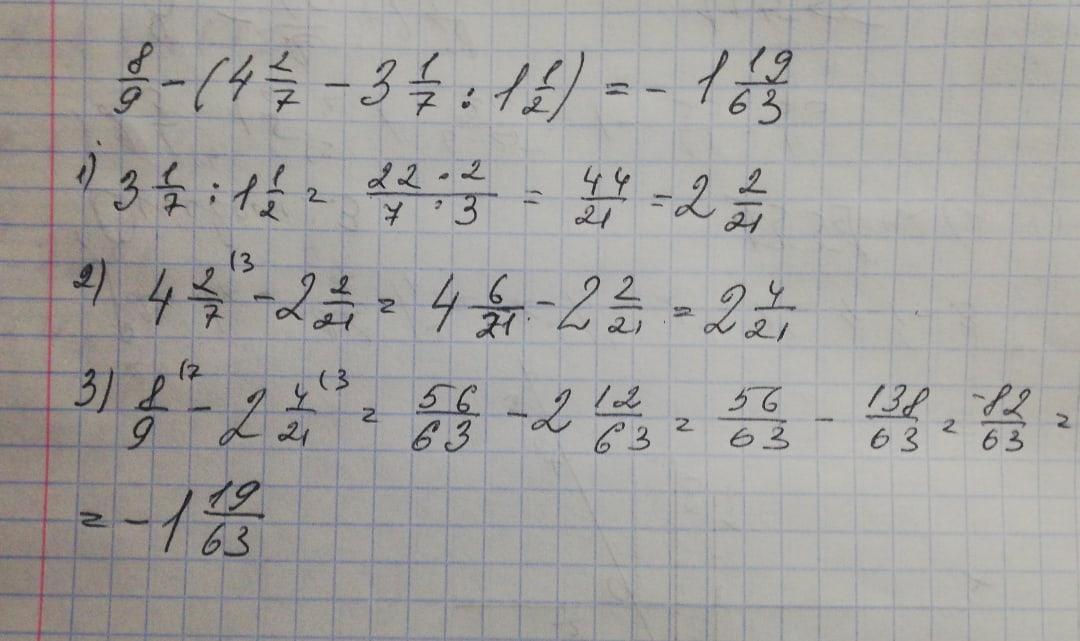 8/9 - (4 2/7 - 3 1/7 : 1 1/2) = - 1 19/63
1) 3 1/7 : 1 1/2 = 22 · 2 / 7 · 3 = 44/21 = 2 2/21
2) 4 2/7 (3 - 2 2/21 = 4 6/21 - 2 2/21 = 2 4/21
3) 8/9 (7 - 2 4/21 (3 = 56/63 - 2 12/63 = 56/63 - 138/63 = -82/63 =
= - 1 19/63